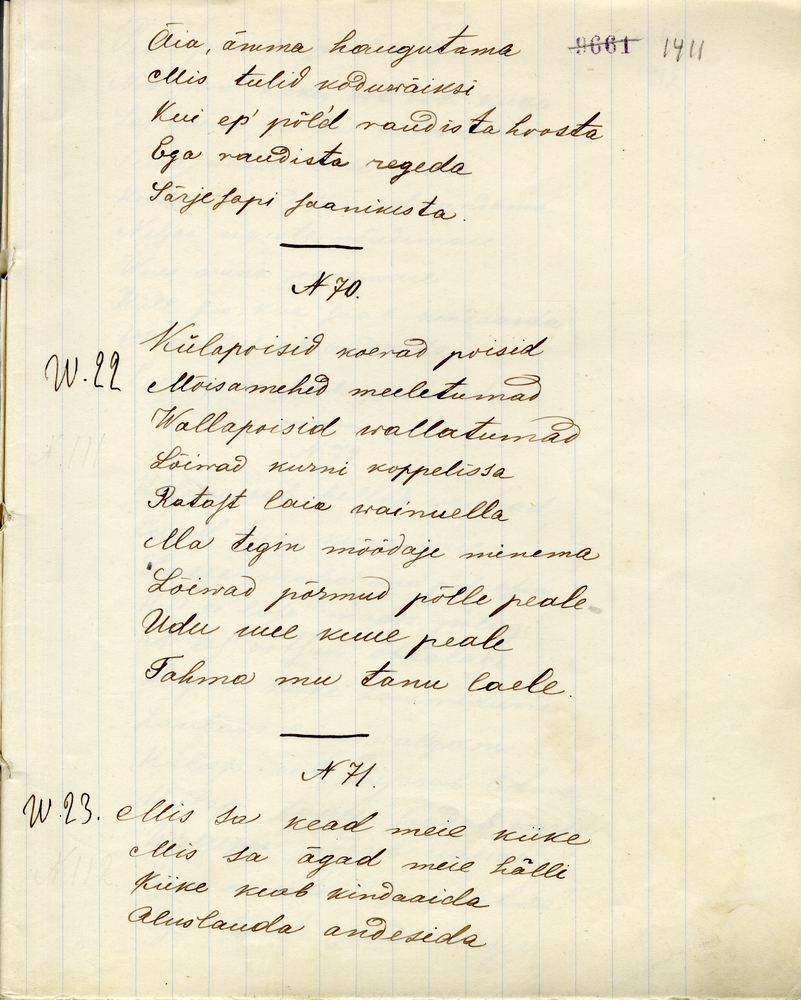 Äia, ämma haugutama
9661 1411
Mis tulid koduwäiksi
Kui ep' põld raudista hoosta
Ega raudista regeda
Särjesapi saanikesta.
N 70.
W. 22
Külapoisid koerad poisid
Mõisamehed meeletumad
Wallapoisid wallatumad
Lõiwad kurni koppelissa
Ratast laia wainuella
Ma tegin möödaje minema
Lõiwad põrmud põlle peale
Udu uue kuue peale
Tahma mu tanu laele.
N 71.
W. 23. Mis sa kead meie kiike
Mis sa ägad meie hälli
Kiike keab kindaaida
Aluslauda andesida